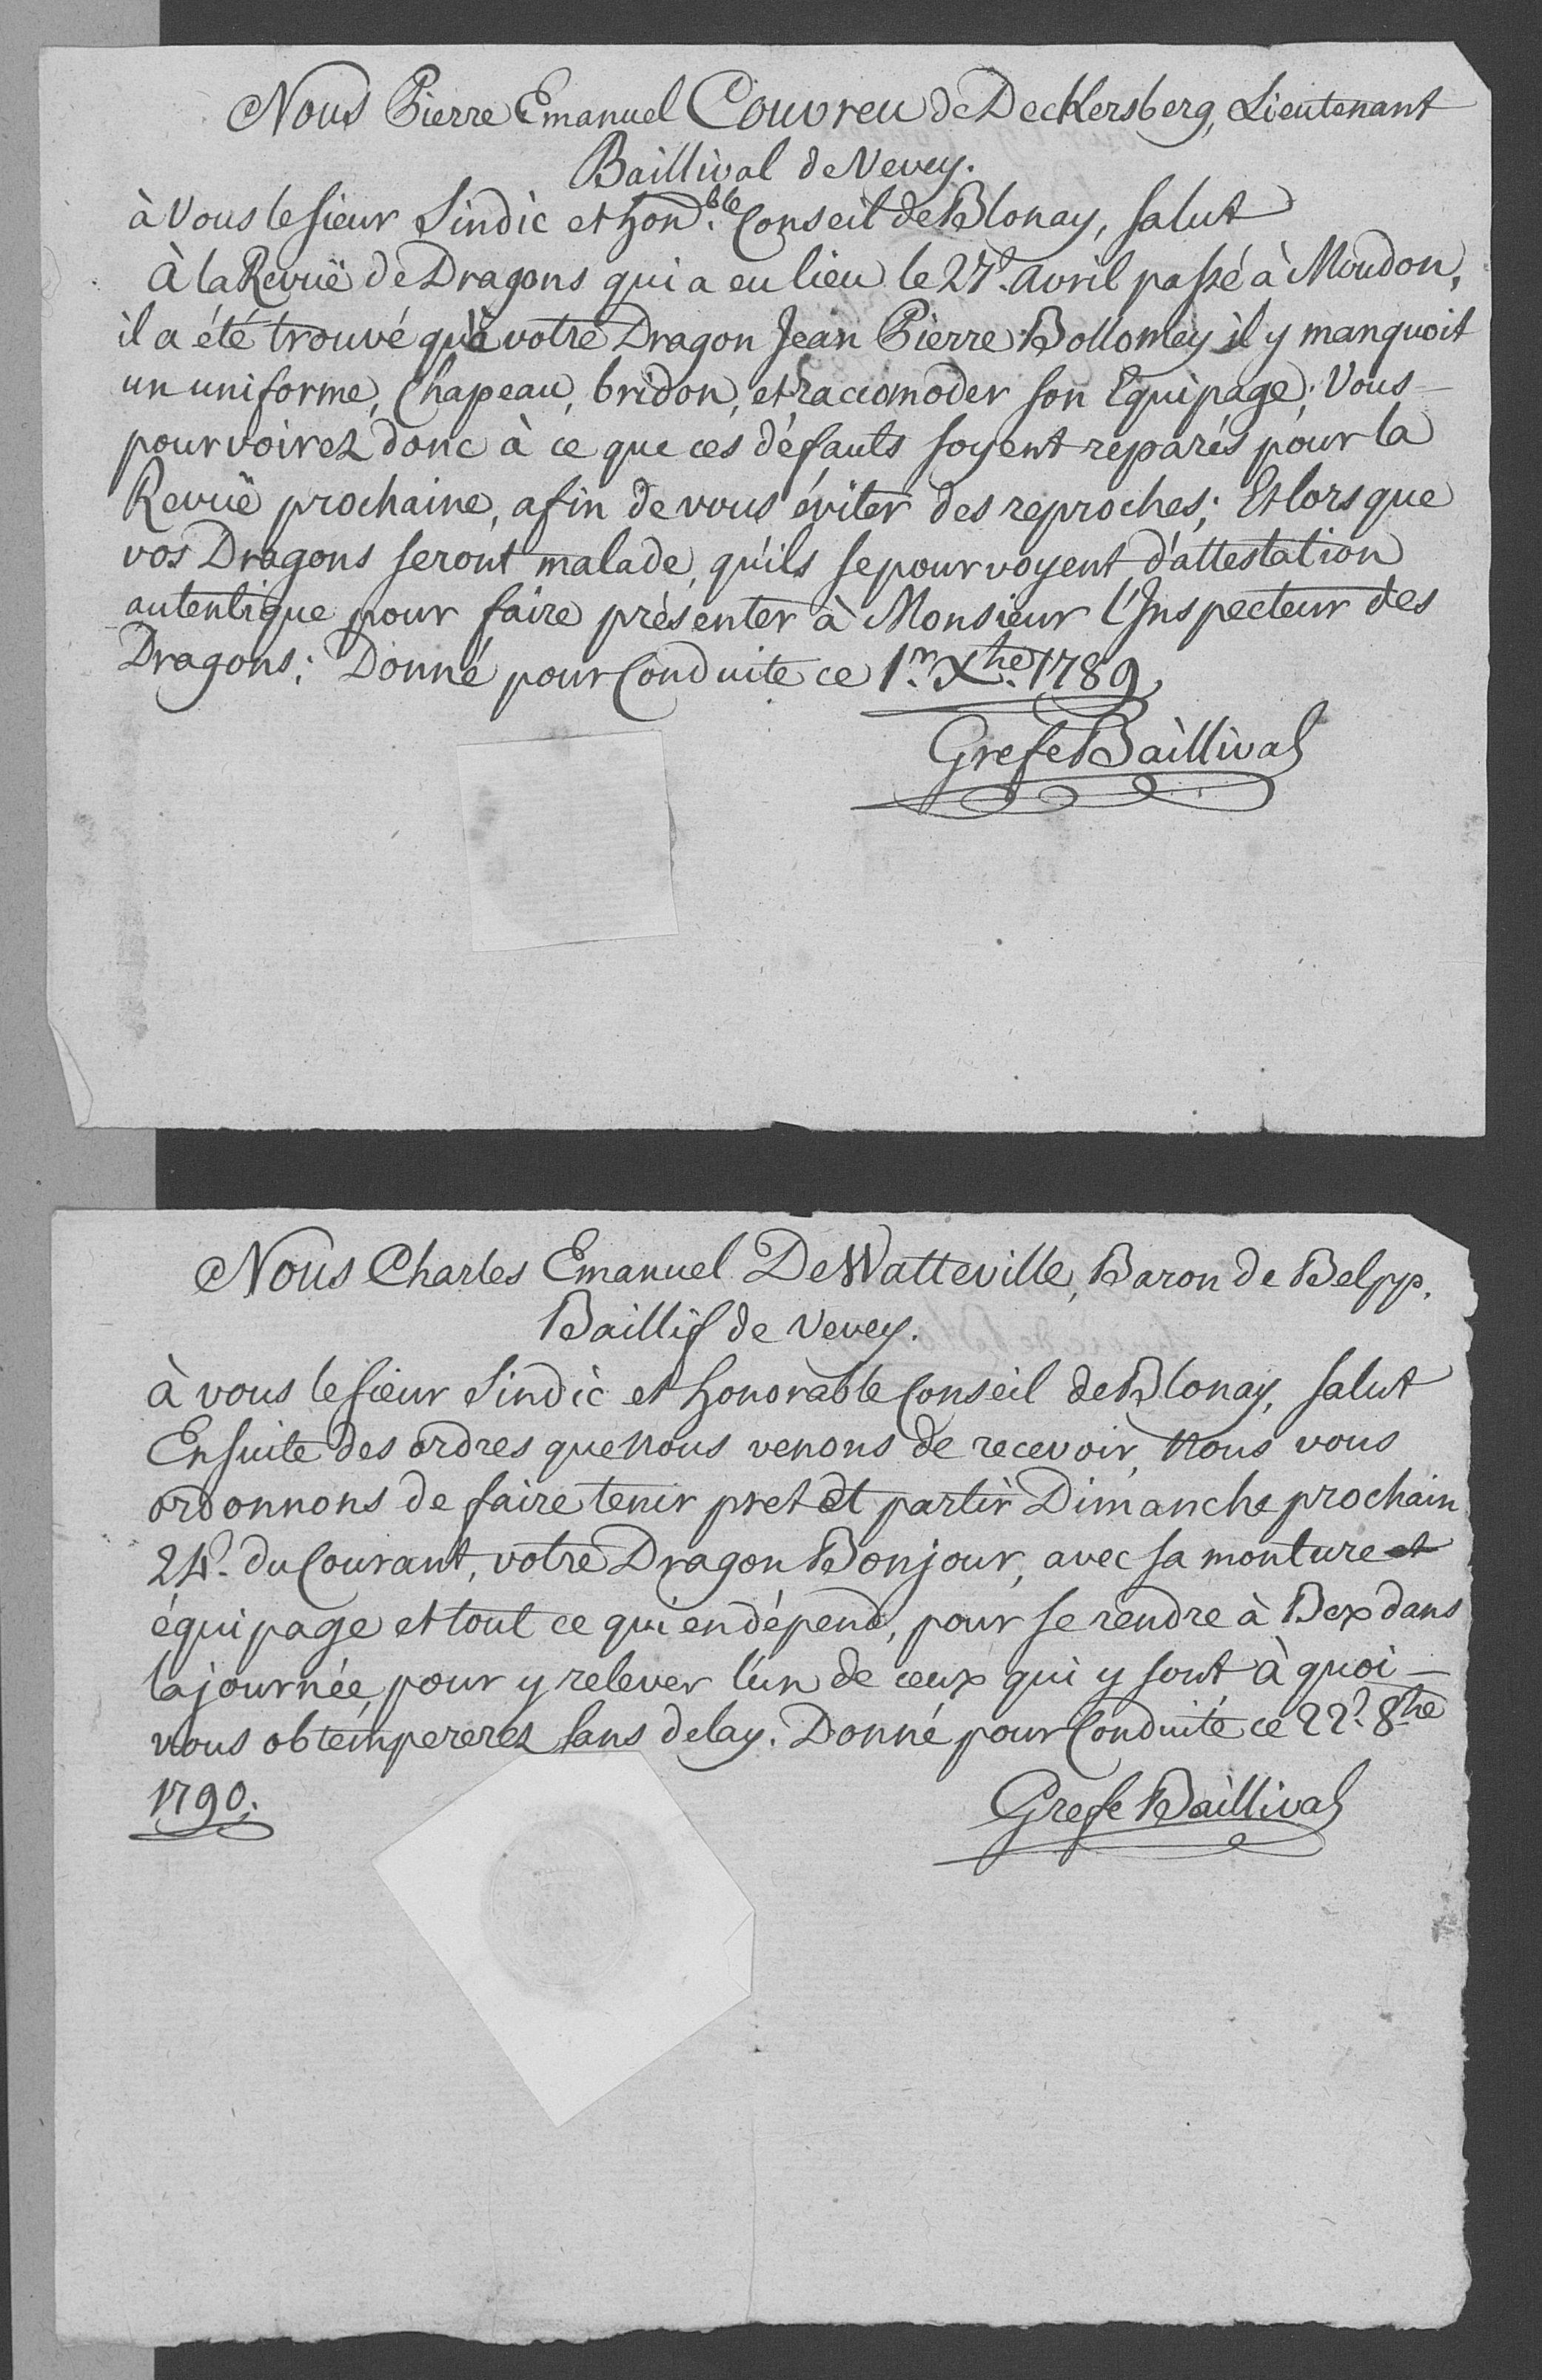 Nous Pierre Emanuel Couvreu de Deckersberg, Lieutenant
Baillival de Vevey.
à Vous le sieur Sindic et hon.ble Conseil de Blonay, salut
À la Revuë de Dragons qui a eu lieu le 27.e avril passé à Moudon,
il a été trouvé qu'à votre Dragon Jean Pierre Bollomey il y manquoit
un uniforme, Chapeau, bridon, et raccomoder son Equipage; Vous
pourvoirez donc à ce que ces défauts soyent reparés pour la
Revuë prochaine, afin de vous éviter des reproches; Et lors que
vos Dragons seront malade, qu'ils se pourvoyent d'attestation
autentique pour faire prèsenter à Monsieur l'Inspecteur des
Dragons; Donné pour Conduite ce 1.r Xbre 1789.
Grefe Baillival
Nous Charles Emanuel De Watteville, Baron de Belpp,
Baillif de Vevey.
à vous le sieur Sindic et honorable Conseil de Blonay, salut
Ensuite des ordres que nous venons de recevoir, Nous vous
ordonnons de faire tenir pret et partir Dimanche prochain
24.e du Courant, votre Dragon Bonjour, avec sa monture et
équipage et tout ce qui en dépend, pour se rendre à Bex dans
la journée, pour y relever l'un de ceux qui y sont à quoi
vous obtempererez sans delay. Donné pour Conduite ce 22.e 8bre
1790.
Grefe Baillival